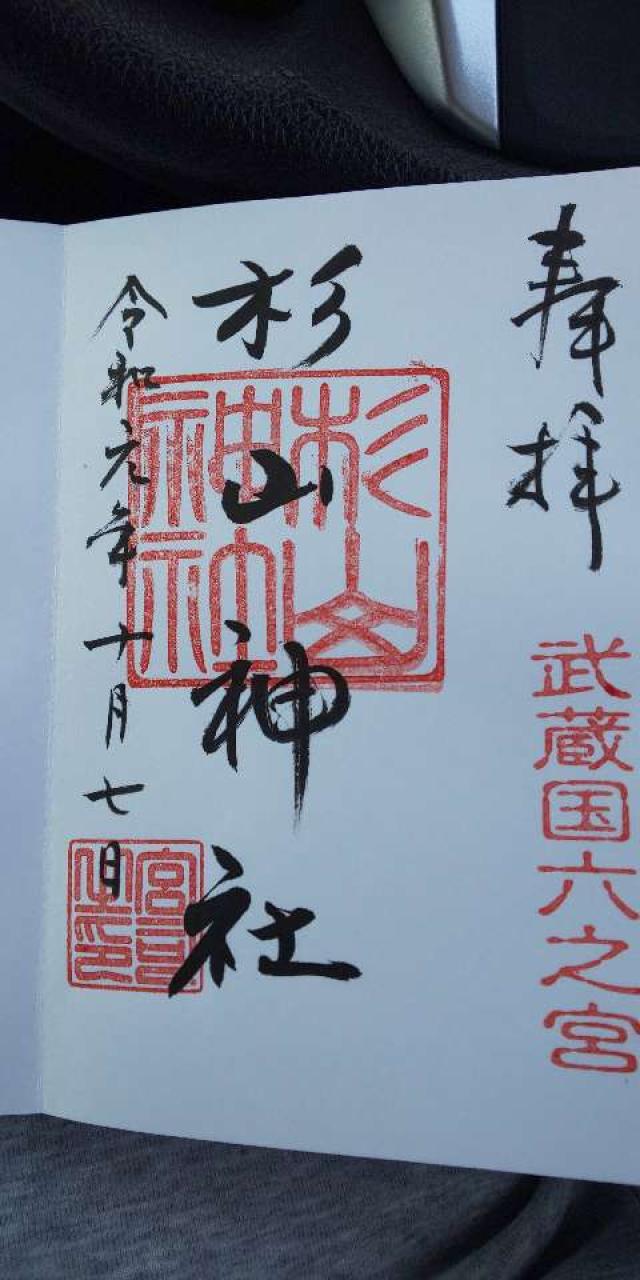 奉拝
武蔵国六之宮
杉山神社
杉山神社
令和元年十月七日
宮司之印